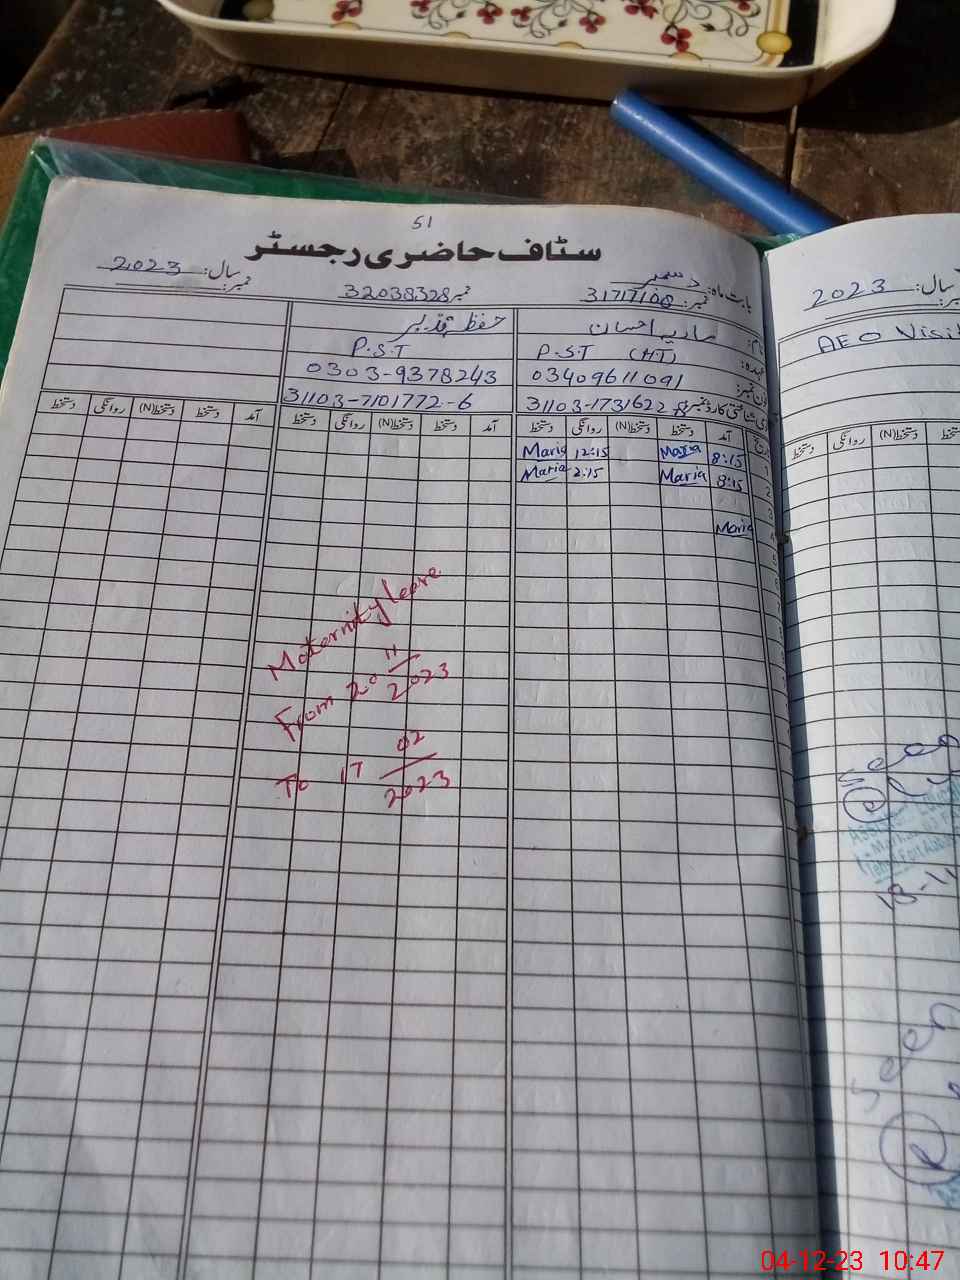 51
سٹاف حاضری رجسٹر
بابت ماہ: دسمبر سال: 2023
نمبر: 31717108 نمبر 32038328 نمبر:
نام: ماریہ احسان
عہدہ: P.S.T (HT) P.S.T
فون نمبر: 03409611091 0303-9378243
شناختی کارڈ نمبر 31103-1731622-8 31103-7101772-6
تاریخ آمد دستخط دستخط(N) روانگی دستخط آمد دستخط دستخط(N) روانگی دستخط آمد دستخط دستخط(N) روانگی دستخط
1 8:15 Maria 12:15 Maria
2 8:15 Maria 2:15 Maria
3
4 Maria
5
6
7
Maternity leave
From 20 11/2023
To 17 02/2023
سال: 2023
AEO Visit
دستخط(N) روانگی دستخط
Seen
18-11
Seen
04-12-23 10:47